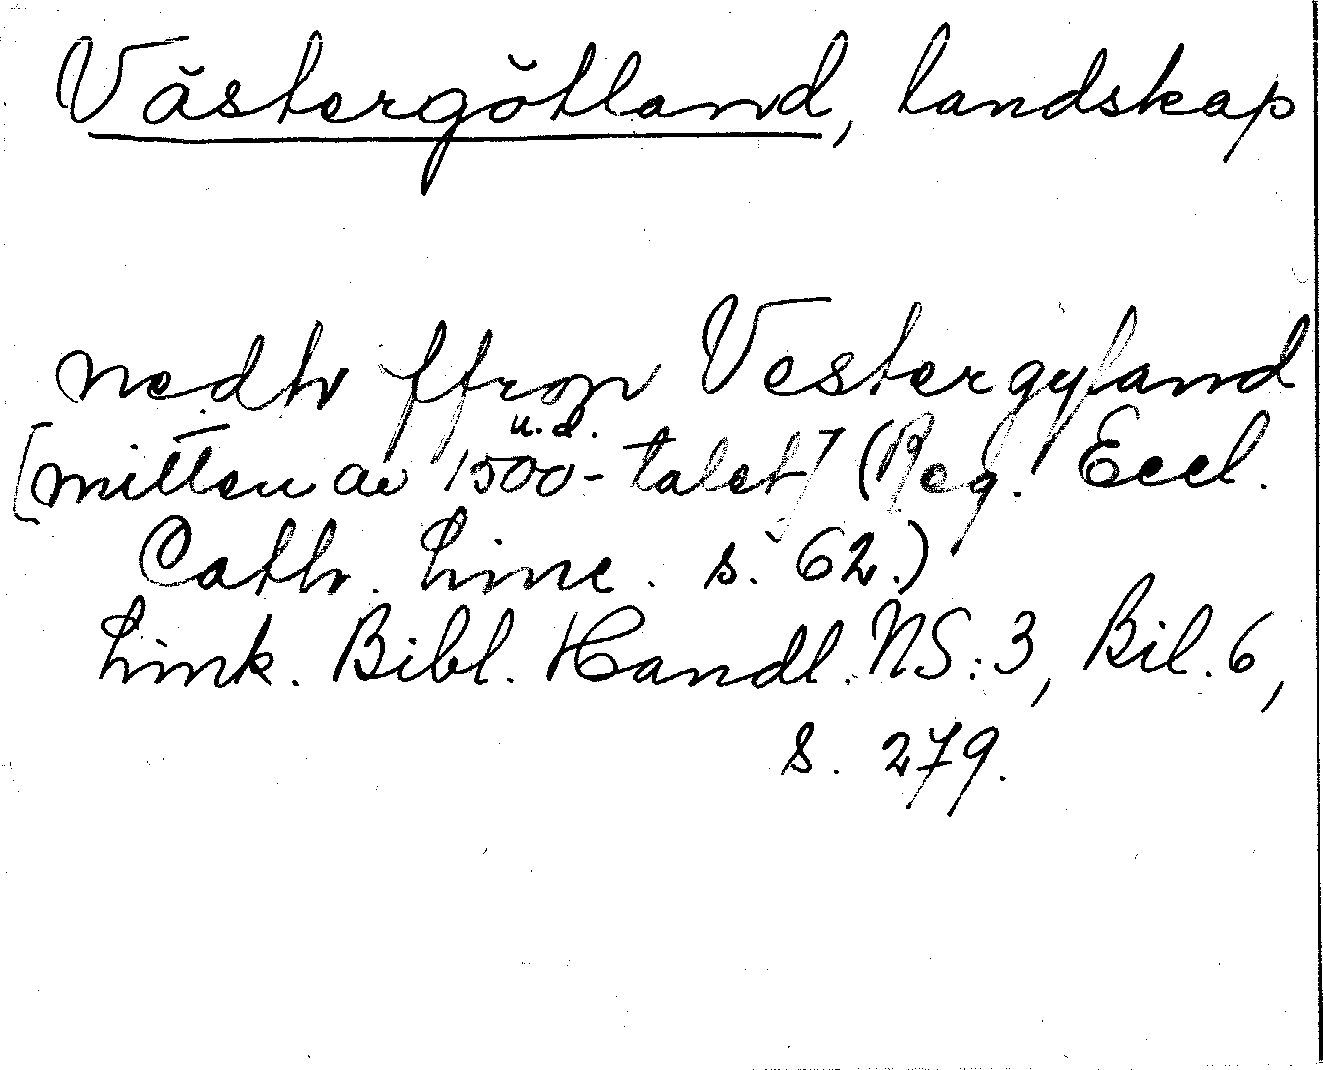 Västergötland, landskap
nedh ffron Vestergyland
u.d.
[mitten av 1500-talet] (Reg. Eccl.
Cath. Linc. s. 62.)
Link. Bibl. Handl. NS:3, Bil. 6,
s. 279.